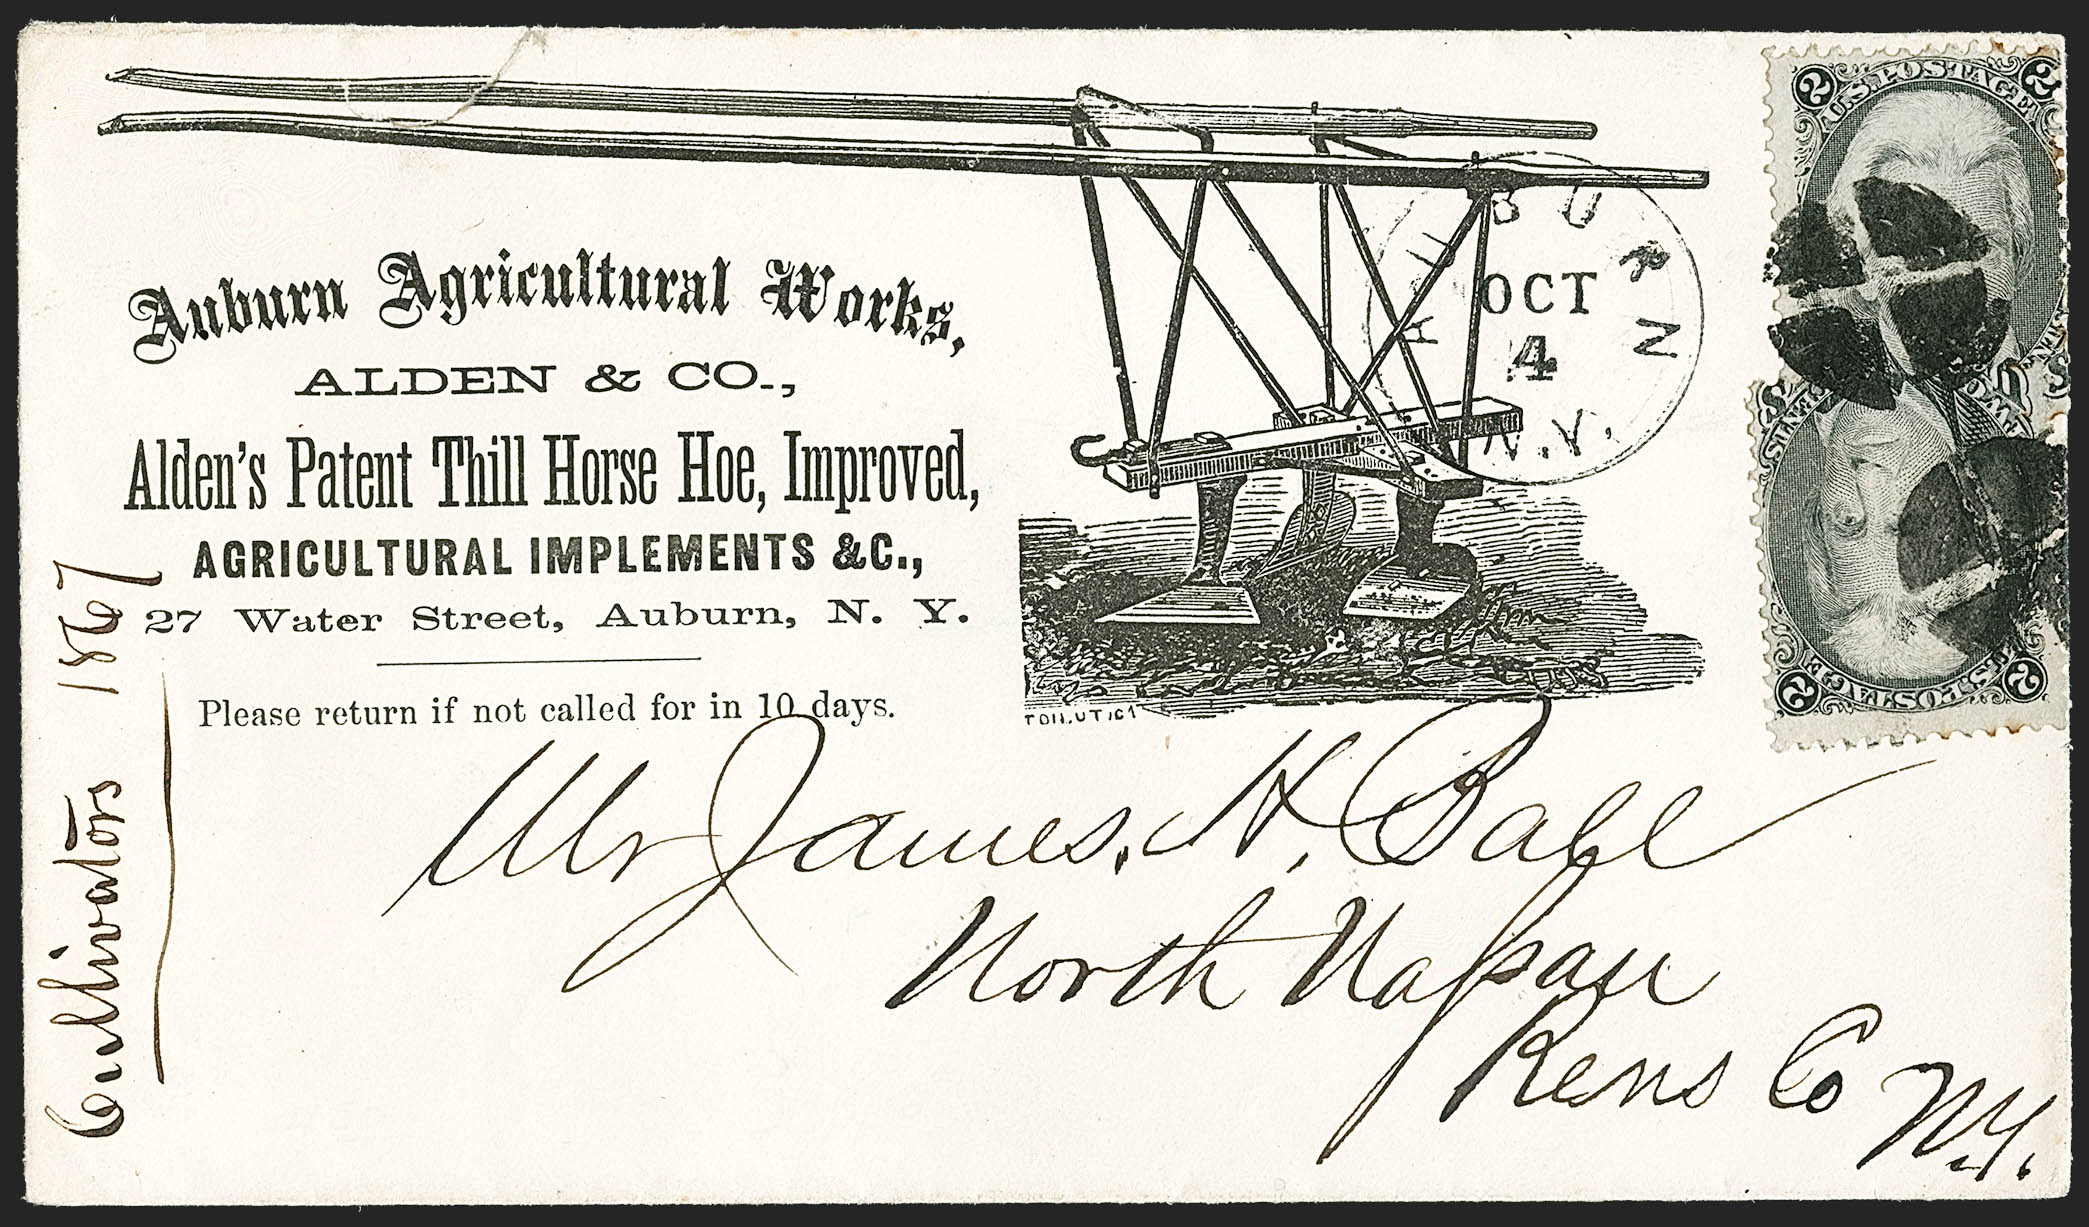 Auburn Agricultural Works,
ALDEN & CO.,
Alden's Patent Thill Horse Hoe, Improved,
AGRICULTURAL IMPLEMENTS &C.,
27 Water Street, Auburn, N. Y.
Please return if not called for in 10 days.
AUBURN
OCT
4
N.Y.
2 U.S. POSTAGE 2
2 U.S. POSTAGE 2
Mr James. H. Ball
North Napau
Rens Co
N.Y.
Cultivators 1867